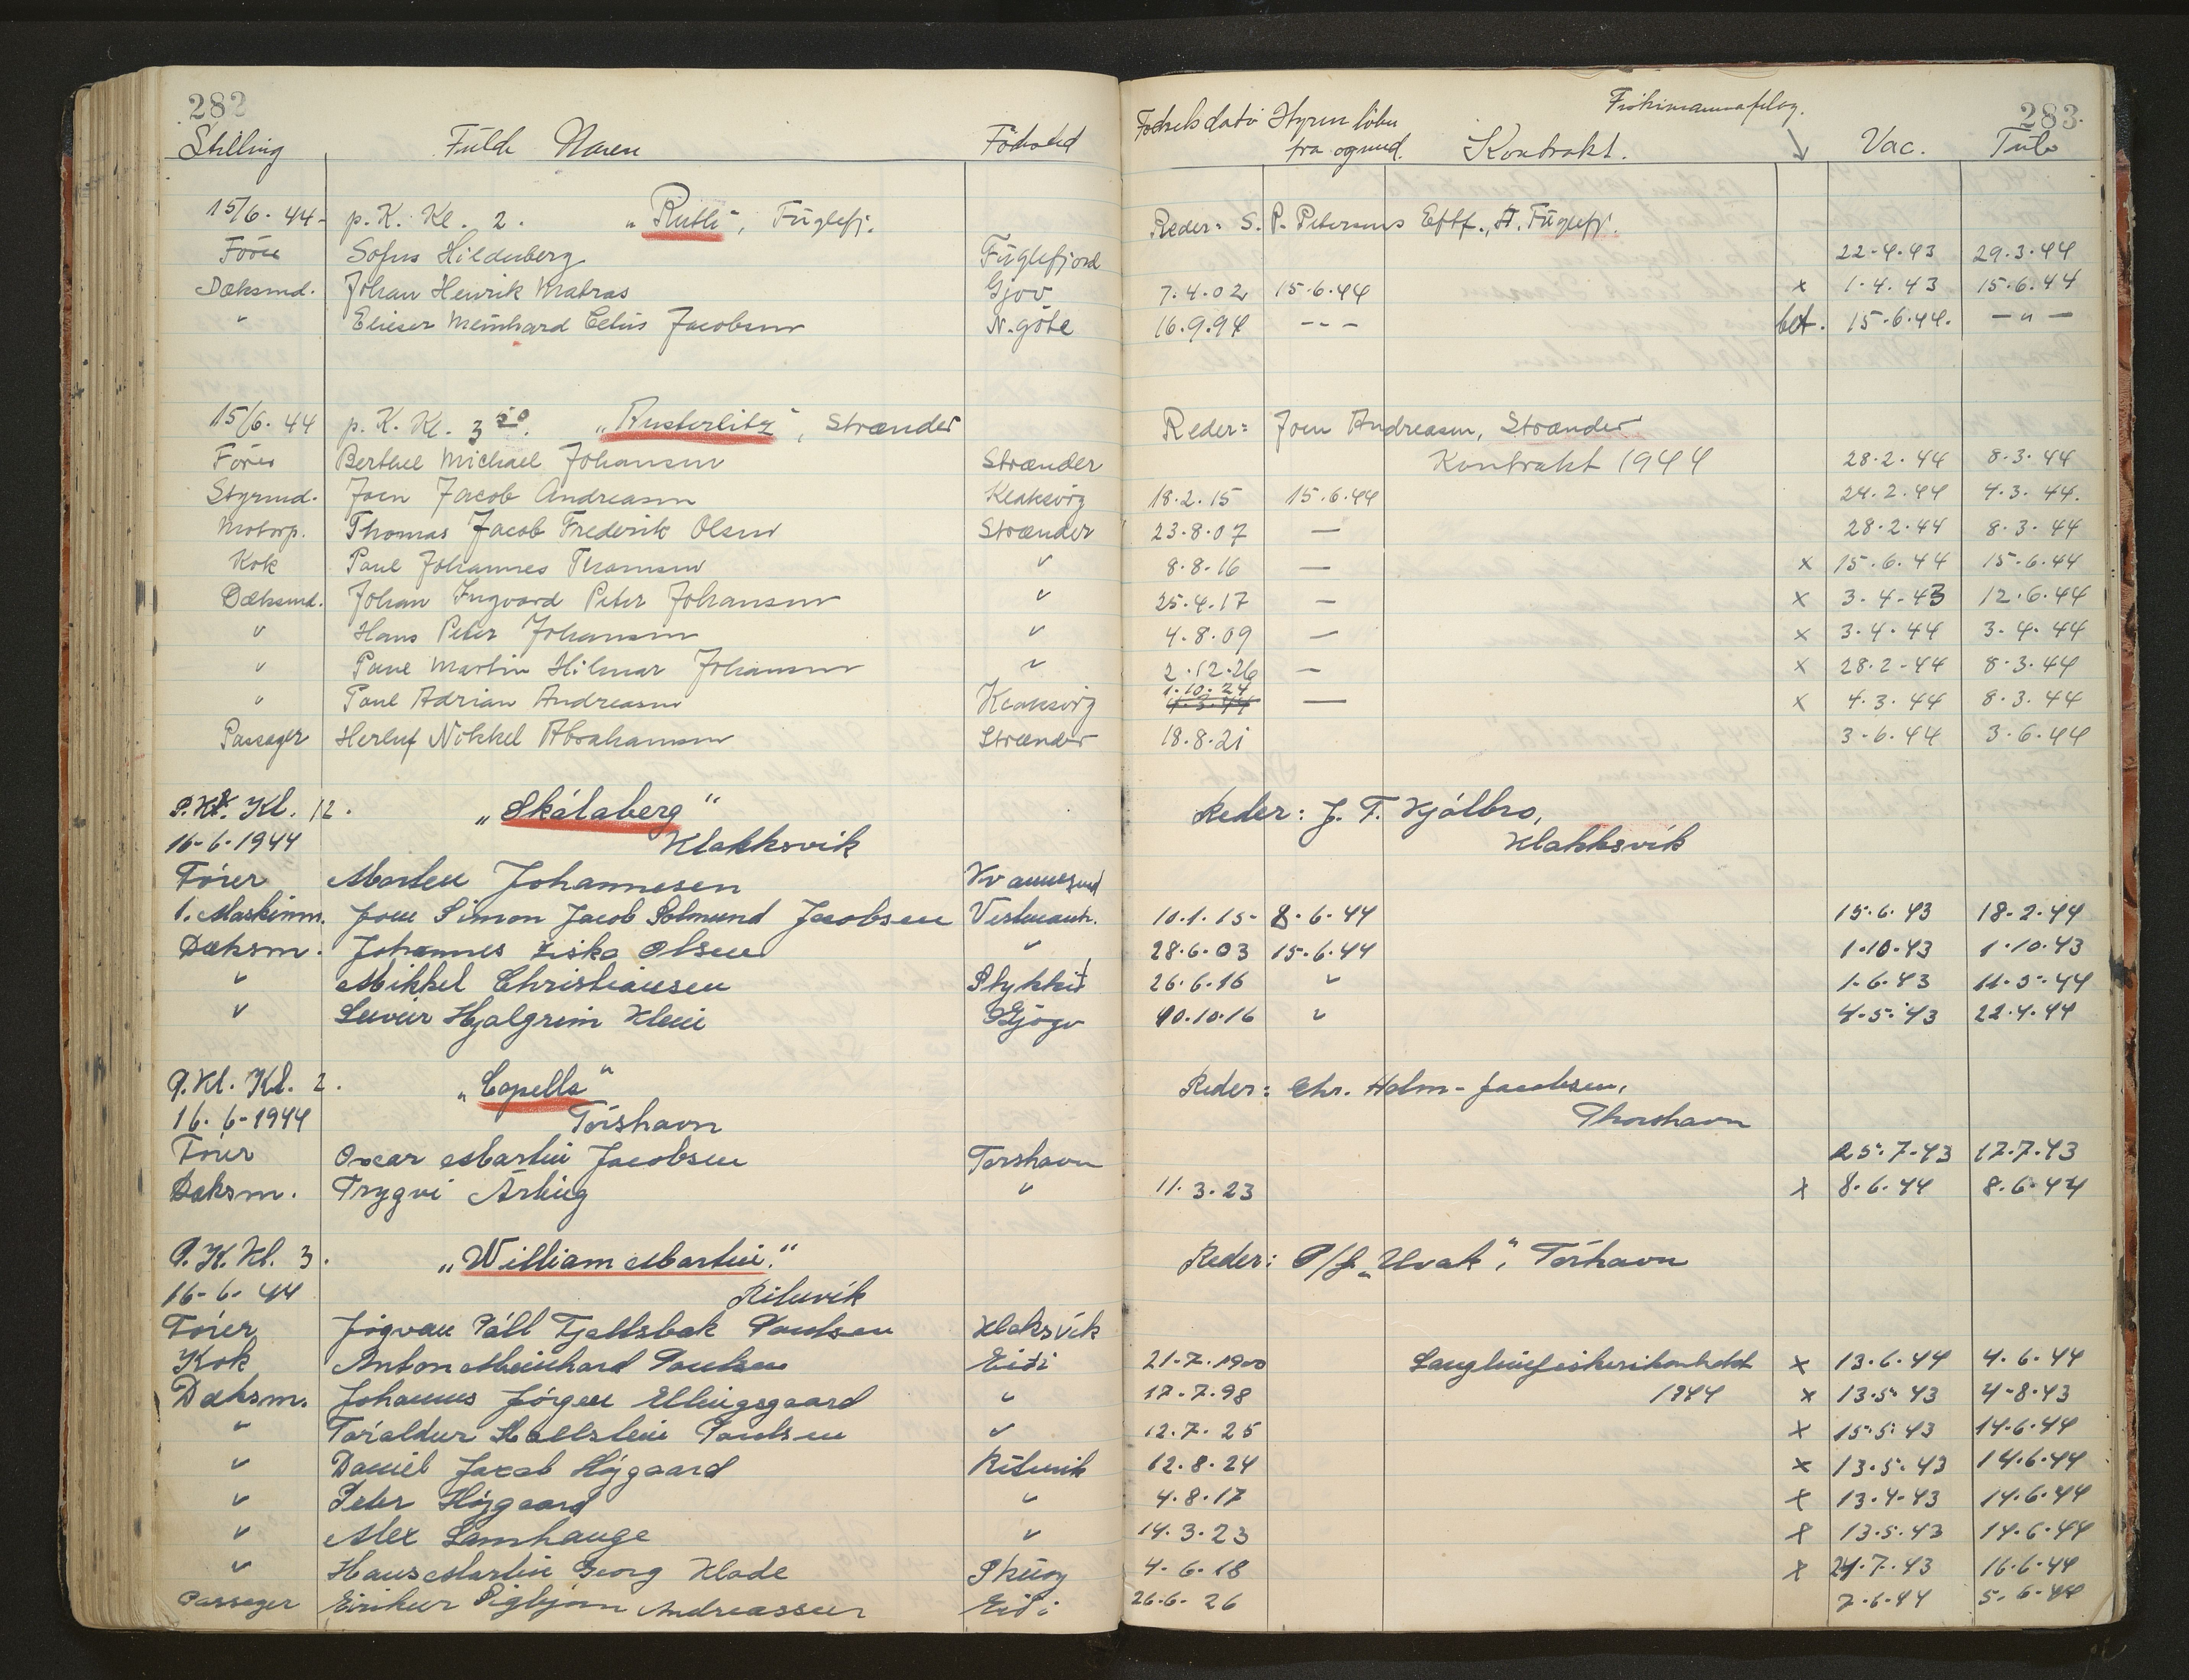 282
283
Stilling Fulde Navn Födsted Födselsdato Hyren löber fra og med. Kontrakt. Fiskimannafelag. Vac. Tub
15/6. 44 - p. K. Kl. 2. "Ruth", Fuglefj. Reder: S. P. Petersens Eftf., Fuglefj.
Förer Sofus Hildenberg Fuglefjord 22-4.43 29.3.44
Dæksmd. Johan Henrik Matras Gjov 7.4.02 15.6.44 x 1.4.43 15.6.44
" Elieser Meinhard Celius Jacobsen N. göte 16.9.94 - - - bet. 15.6.44. - " -
15/6. 44 p. K. Kl. 3 20. "Austerlitz", Strænder Reder: Joen Andreasen, Strænder
Förer Berthel Michael Johansen Strænder Kontrakt 1944 28.2.44 8.3.44
Styrmd. Joen Jacob Andreasen Klaksvig 18.2.15 15.6.44 24.2.44 4.3.44.
Motorp. Thomas Jacob Frederik Olsen Strænder 23.8.07 — 28.2.44 8.3.44
Kok Poul Johannes Thomsen " 8.8.16 — x 15.6.44 15.6.44
Dæksmd. Johan Ingvard Peter Johansen " 25.4.17 — x 3-4-43 12.6.44
" Hans Peter Johansen " 4.8.09 — x 3.4.44 3.4.44
" Poul Martin Hilmar Johansen " 2.12.26 — x 28.2-44 8.3.44
" Poul Adrian Andreasen Klaksvig 1.10.24 — x 4.3.44 8.3.44
Passager Herluf Nikkel Abrahamsen Strænder 18.8.21 3.6.44 3.6.44
P. K. Kl. 12. "Skálaberg" Reder: J. F. Kjölbro,
16-6-1944 Klakksvik Klakksvík
Förer Morten Johannesen Kvannesund
1. Maskinm. Joen Simon Jacob Polmund Jacobsen Vestmanh. 10.1.15- 8.6.44 15.6.43 18.2.44
Dæksm. Johannes Ziska Olsen " 28.6.03 15.6.44 1.10.43 1.10.43
" Mikkel Christiansen Stykki 26.6.16 " 1.6.43 11.5.44
" Leivur Hjalgrim Klein Gjógv 10.10.16 " 4.5.43 22.4.44
P. Kl. Kl. 2. "Capella" Reder: Chr. Holm-Jacobsen,
16.6-1944 Tórshavn Thorshavn
Förer Oscar Martin Jacobsen Torshavn 25.7-43 17.7.43
Dæksm. Trygvi Arting " 11.3.23 x 8.6.44 8.6.44
P. K. Kl. 3. "William Martin." Reder: P/f "Hvak", Tórhavn
16-6-44 Rituvík
Förer Jógvan Páll Fjallsbak Poulsen Klaksvík
Kok Anton Meinhard Poulsen Eidi 21.7.1900 Langlinefiskerikontrakt x 13.6.44 4.6.44
Dæksm. Johannes Jörgen Ellingsgaard " 17.7.98 1944 x 13.5.43 4-8.43
" Tóraldur Hallstein Poulsen " 12.7.25 x 15.5.43 14.6.44
" Daniel Jacob Höjgaard Rituvik 12.8.24 x 13.5.43 14.6.44
" Peter Höjgaard " 4.8.17 x 13.4.43 14.6.44
" Alex Lamhauge " 14.3.23 x 13.5.43 14.6.44
" Hans Martin Georg Klade Skúoy 4-6.18 x 24.7.43 16.6.44
Passager Eirikur Sigbjörn Andreassen Eidi 26.6.26 7.6.44 5.6.44